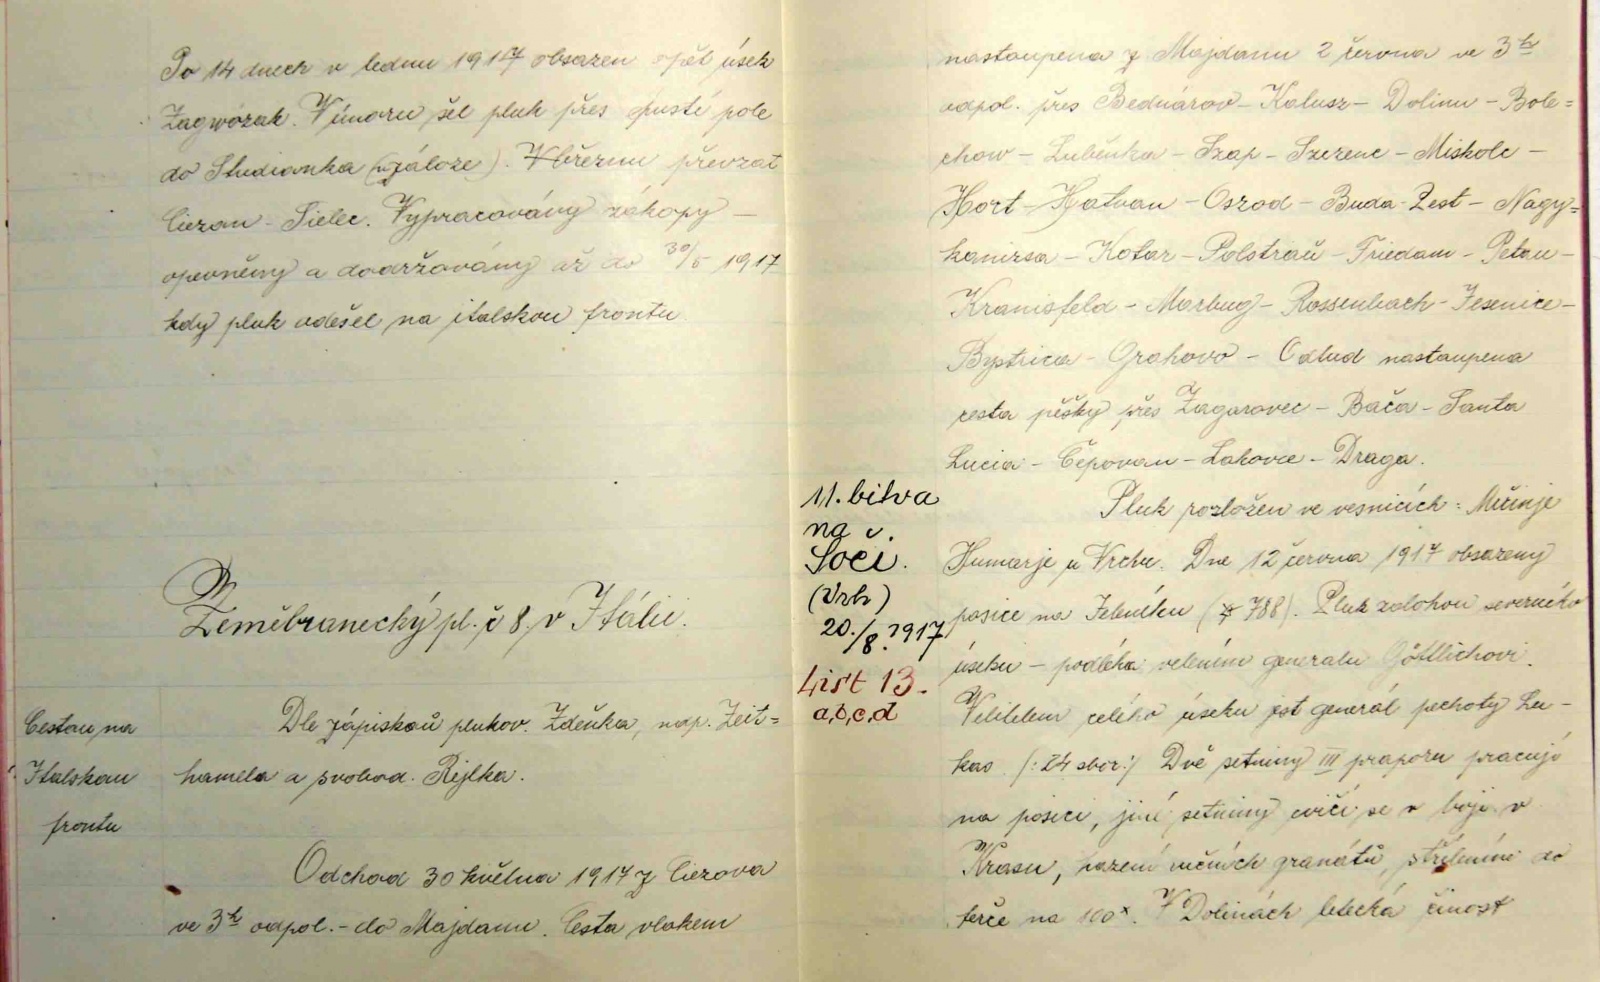 Po 14 dnech v lednu 1917 obsazen opět úsek
Zagwózak. V únoru šel pluk přes pusté pole
do Studianka (v záloze). V březnu převzat
Ciezan - Sielec. Vypracovány zákopy –
opevněny a dodržovány až do 30/5 1917
kdy pluk odešel na italskou frontu.
Zeměbranecký pl. č 8. v Itálii.
Cestou na
Italskou
frontu
Dle zápisků plukov. Zdeňka, nap. Zeit=
hamela a svobod. Rejlka.
Odchod 30 května 1917 z Ciezova
ve 3h odpol. - do Majdanu. Cesta vlakem
nastoupena z Majdanu 2 června ve 3h
odpol. přes Bednárov - Kalusz - Dolinu - Bole=
chow - Luběnka - Szap - Szerenc - Miskolc -
Hort - Hatvan - Oszod - Buda-Pest - Nagy=
kanizsa - Kotor - Polstrau - Friedam - Petau -
Kranisfeld - Marbug - Rossenbach - Jesenice -
Bystrica - Grahovo - Odtud nastoupena
cesta pěšky přes Zagarovec - Bača - Santa
Lucia - Čepovan - Lokovce - Draga.
11. bitva
na
Soči.
(Vrh)
20./8. 1917
List 13.
a,b,c,d
Pluk rozložen ve vesnicích: Mičinje
Humarje a Vrchu. Dne 12 června 1917 obsazeny
posice na Jeleníku (788). Pluk zálohou severního
úseku - podléhá velením generalu Göttlichovi.
Velitelem celého úseku jest generál pěchoty Lu -
kas /: 24 sbor:/ Dvě setniny III praporu pracují
na posici, jiné setniny cvičí se v boji v
Krasu, hazení ručních granátů, střílením do
terče na 100x. V Dolinách letecká činost